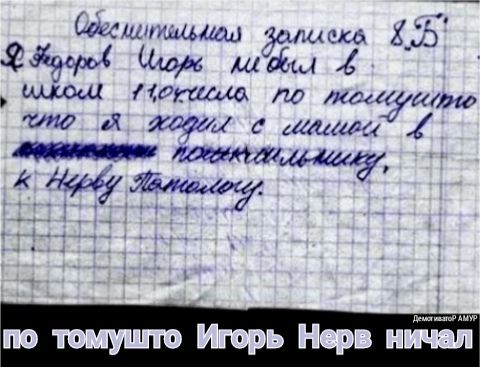 Обеснительная записка 8 „Б"
Я Федоров Игорь не был в
школе 11, ого числа по томушто
что я ходил с мамой в
к Нерву Патологу.
ДемотиваторР АМУР
по томушто Игорь Нерв ничал